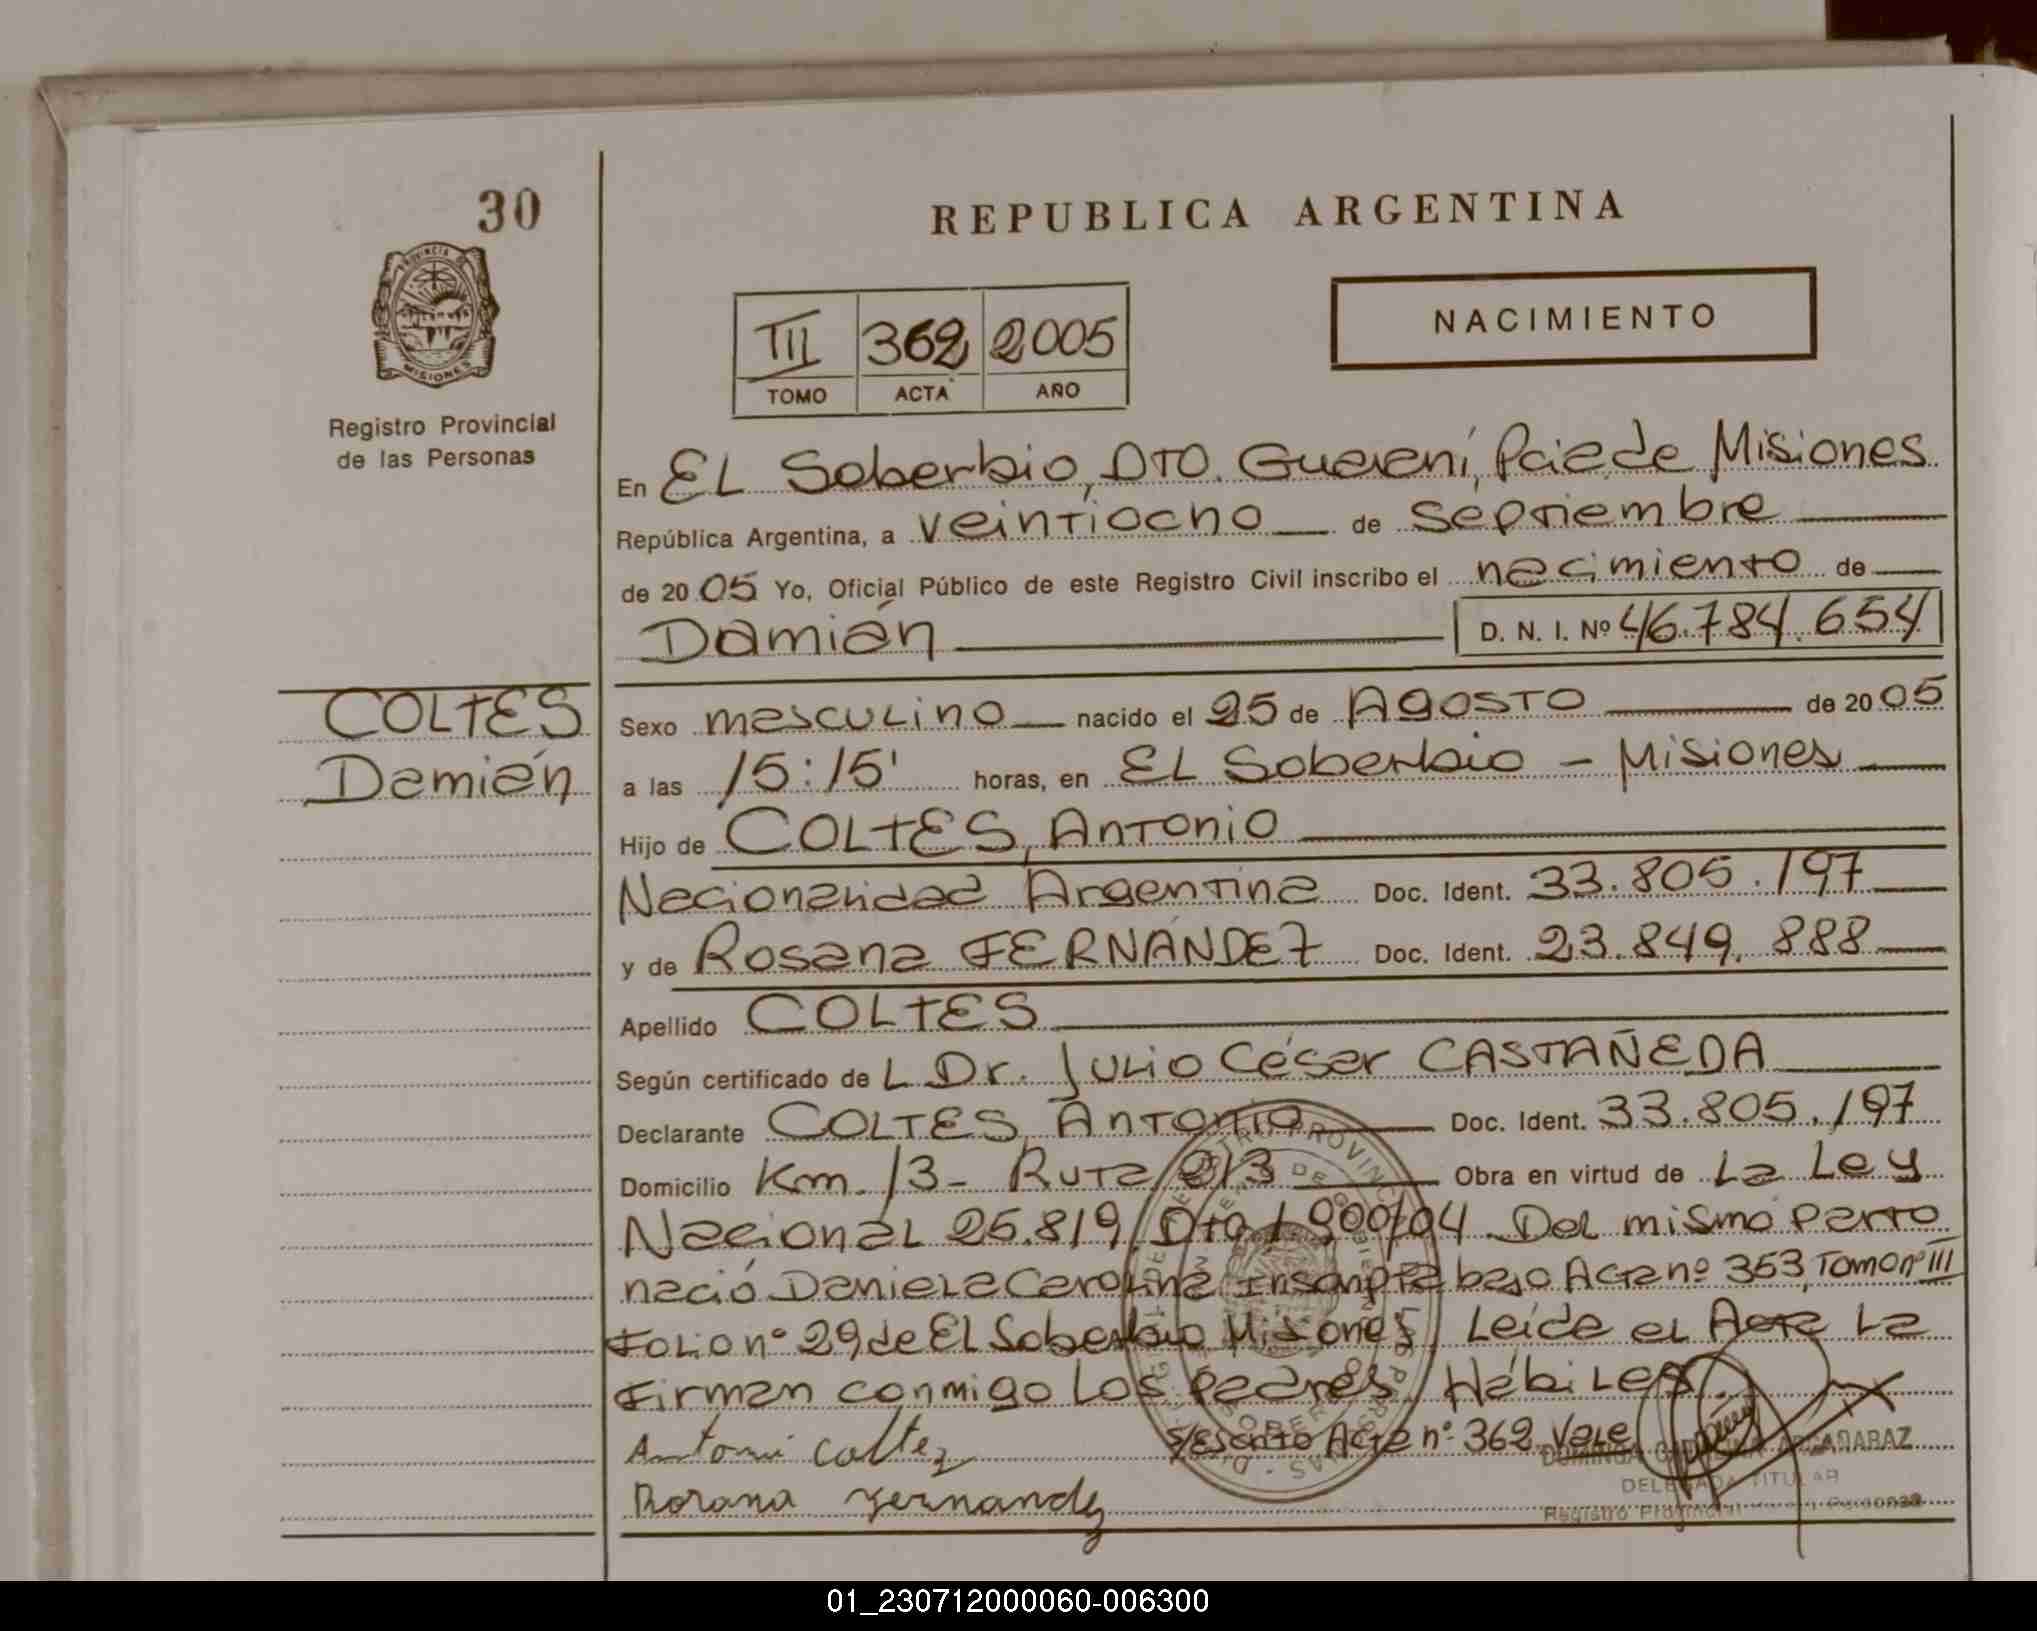 30
PROVINCIA DE
MISIONES
Registro Provincial
de las Personas
REPUBLICA ARGENTINA
III 362 2005
TOMO ACTA AÑO
NACIMIENTO
En EL Soberbio, DTO. Guaraní, Pcia de Misiones
República Argentina, a veintiocho de septiembre
de 2005 Yo, Oficial Público de este Registro Civil inscribo el nacimiento de
Damián D. N. I. Nº 46.784.654
COLTES
Damián
Sexo masculino nacido el 25 de AGOSTO de 2005
a las 15:15' horas, en EL Soberbio - Misiones
Hijo de COLTES, Antonio
Nacionalidad Argentina Doc. Ident. 33.805.197
y de Rosana FERNÁNDEZ Doc. Ident. 23.849.888
Apellido COLTES
Según certificado de L Dr. Julio César CASTAÑEDA
Declarante COLTES, Antonio Doc. Ident. 33.805.197
Domicilio Km. 13 - Ruta 213 Obra en virtud de La Ley
Nacional 25.819, DTO. 1900/04. Del mismo parto
nació Daniela Carolina Inscripta bajo Acta nº 353, Tomo nº III
Folio nº 29 de El Soberbio Misiones. Leída el Acta La
Firman conmigo Los padres, Hábiles.
s/Escrito Acta nº 362 Vale
Antoni Coltez
Rosana Fernandez
DELEGADA TITULAR
Registro Provincial
01_230712000060-006300